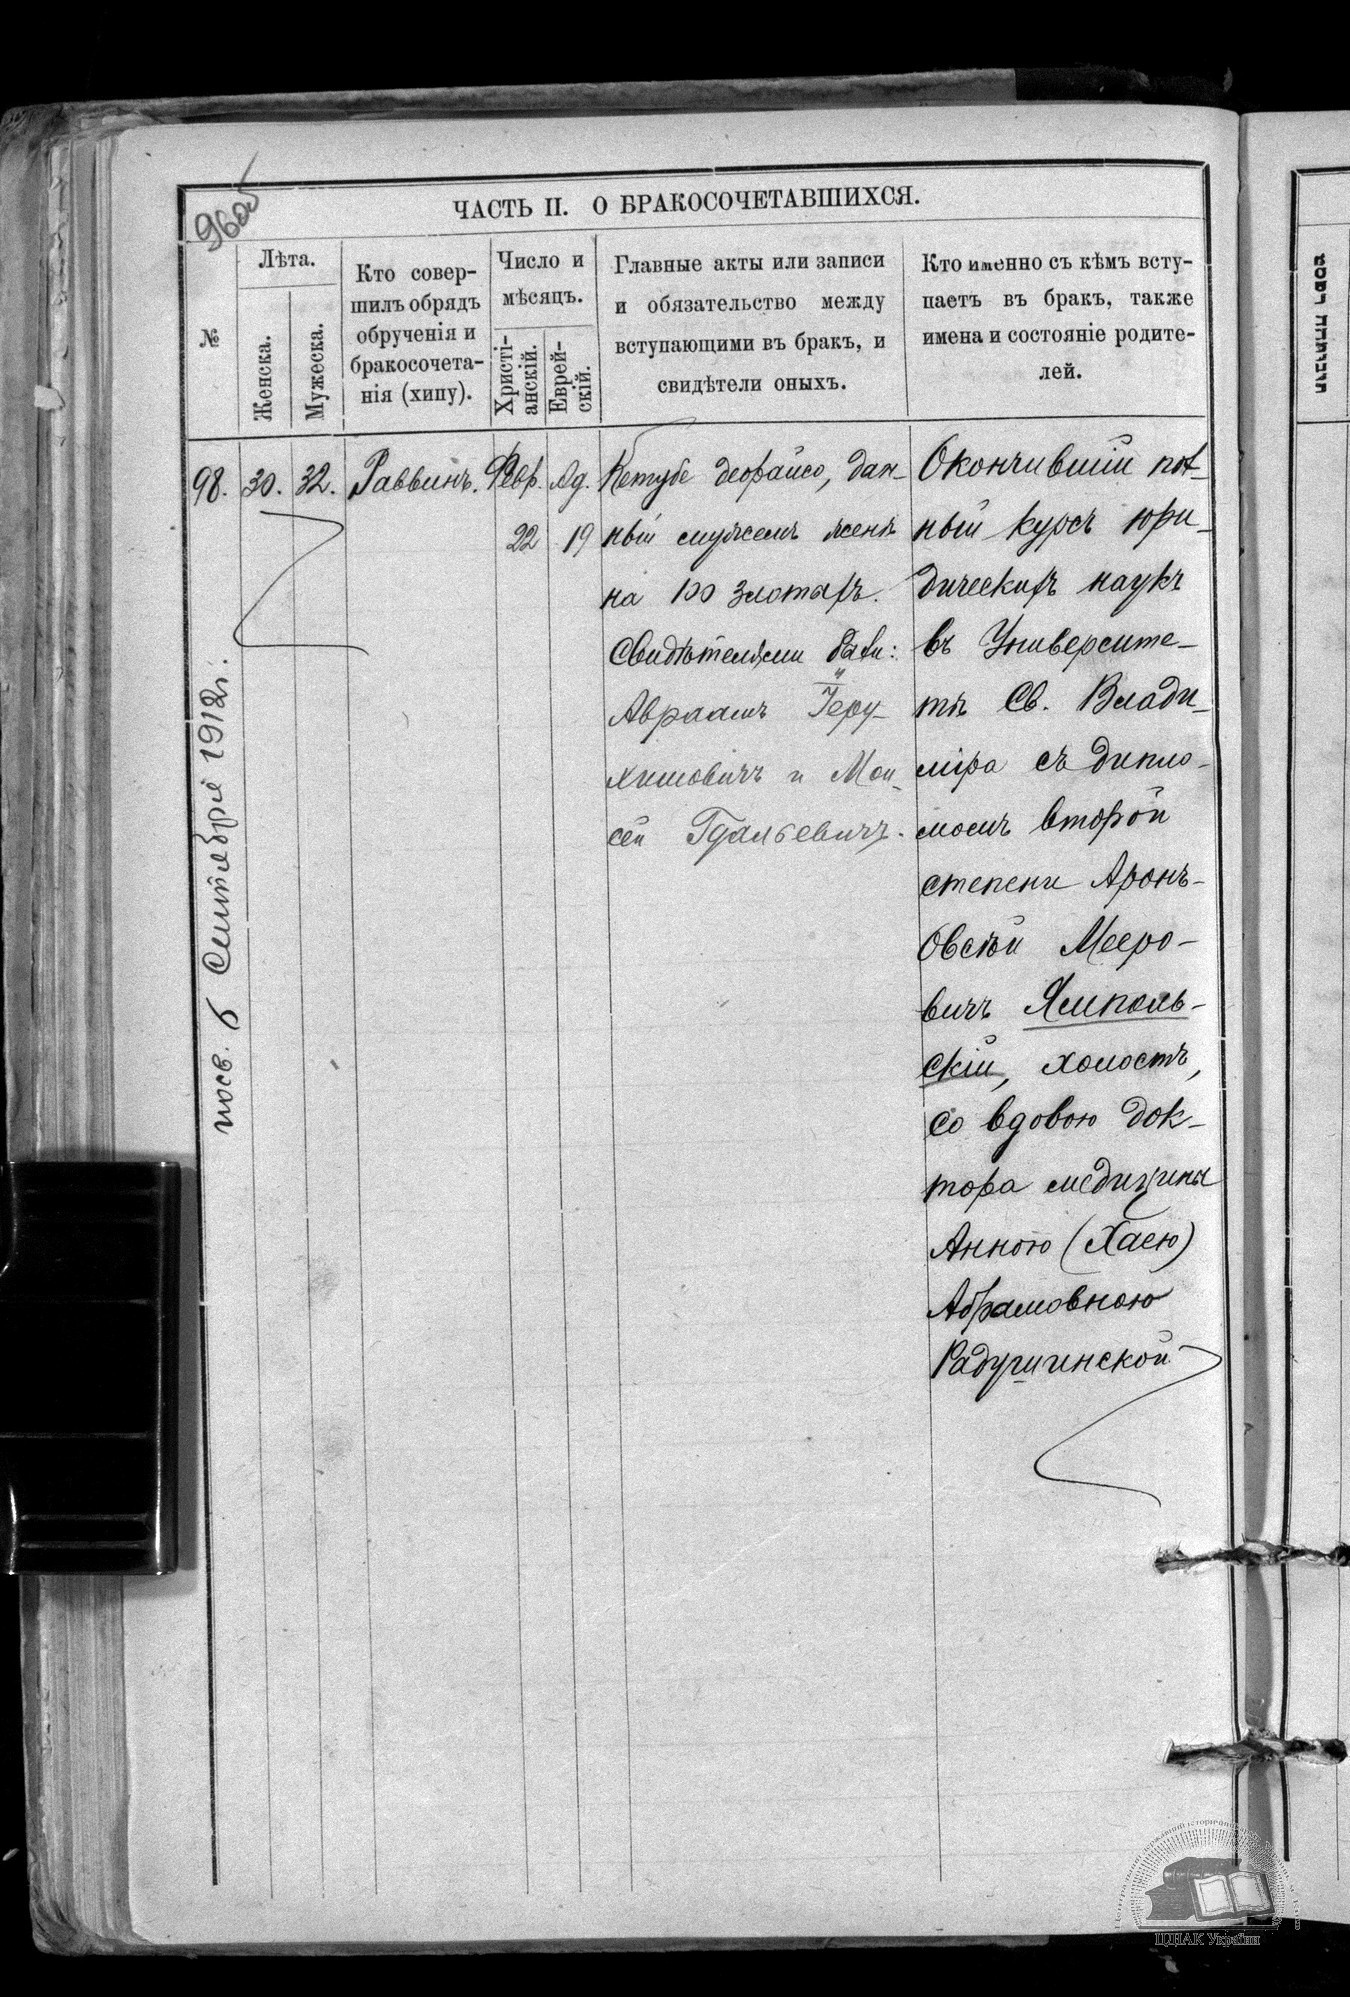 96об
ЧАСТЬ II. О БРАКОСОЧЕТАВШИХСЯ.
№
Лѣта.
Женска.
Мужеска.
Кто совер-
шилъ обрядъ
обрученія и
бракосочета-
нія (хипу).
Число и
мѣсяцъ.
Христі-
анскій.
Еврей-
скій.
Главные акты или записи
и обязательство между
вступающими въ бракъ, и
свидѣтели оныхъ.
Кто именно съ кѣмъ всту-
паетъ въ бракъ, также
имена и состояніе родите-
лей.
98. 30. 32. Раввинъ. Февр. Ад.
22 19
Кетубе деорайсо, дан-
ный мужемъ женѣ
на 100 злотыхъ.
Свидѣтелями были:
Авраамъ Іеру-
химовичъ и Мои-
сей Гдальевичъ.
Окончившій пол-
ный курсъ юри-
дическихъ наукъ
въ Университе-
тѣ Св. Влади-
міра съ дипло-
момъ второй
степени Аронъ-
Овсѣй Мееро-
вичъ Ямполь-
скій, холостъ,
со вдовою док-
тора медицины
Анною (Хаею)
Абрамовною
Радушинской
6 Сентября 1912г.
ЦДІАК України